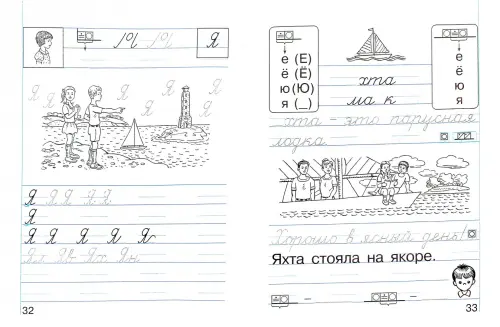 Я
Я Я Я Я Я
Я
Я Я Я Я Я
32
е (Е)
ё (Ё)
ю (Ю)
я (_)
хта
ма к
е
ё
ю
я
хта – это парусная
лодка
Хорошо в ясный день!
Яхта стояла на якоре.
33